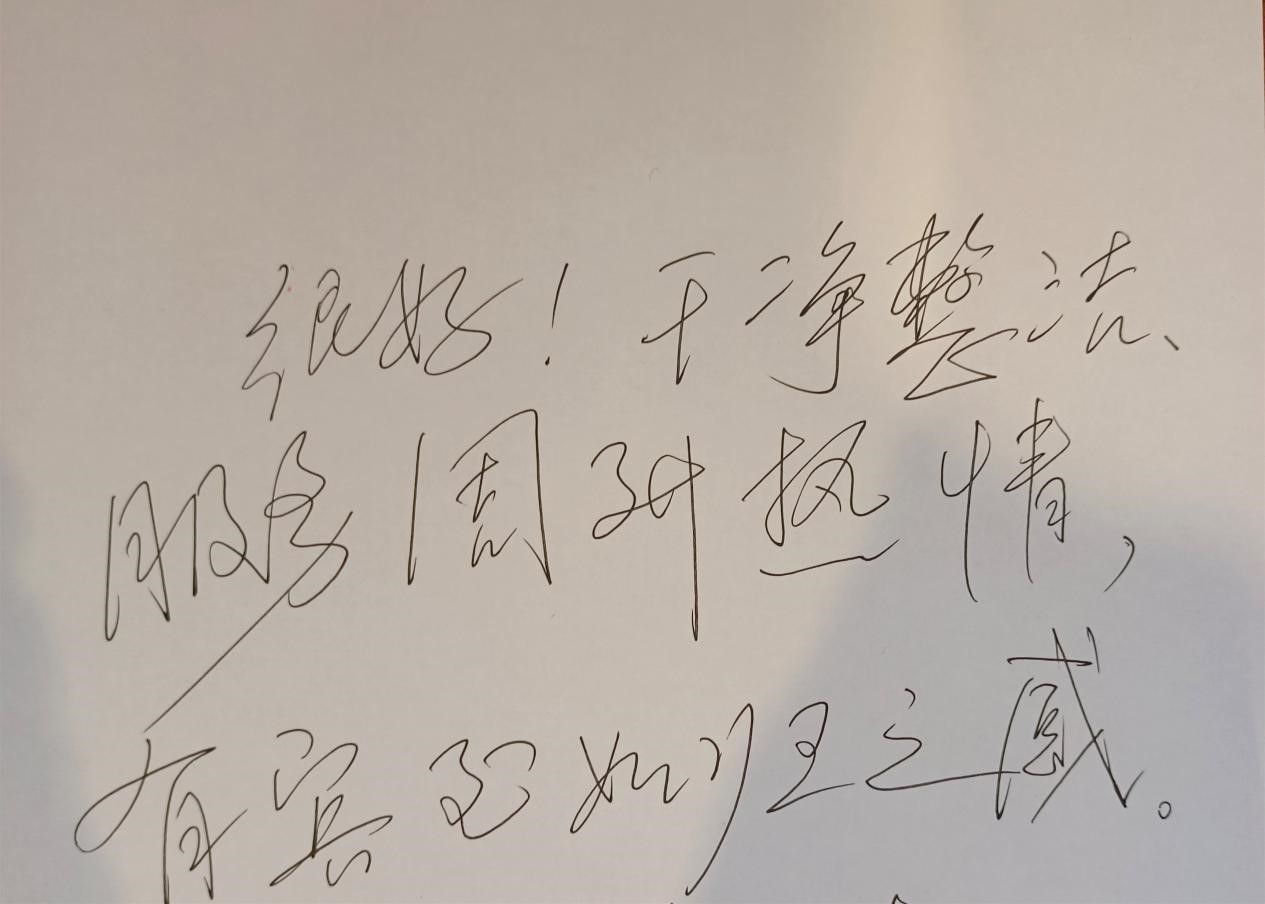 很好！干净整洁、
服务周到热情，
有宾至如归之感。